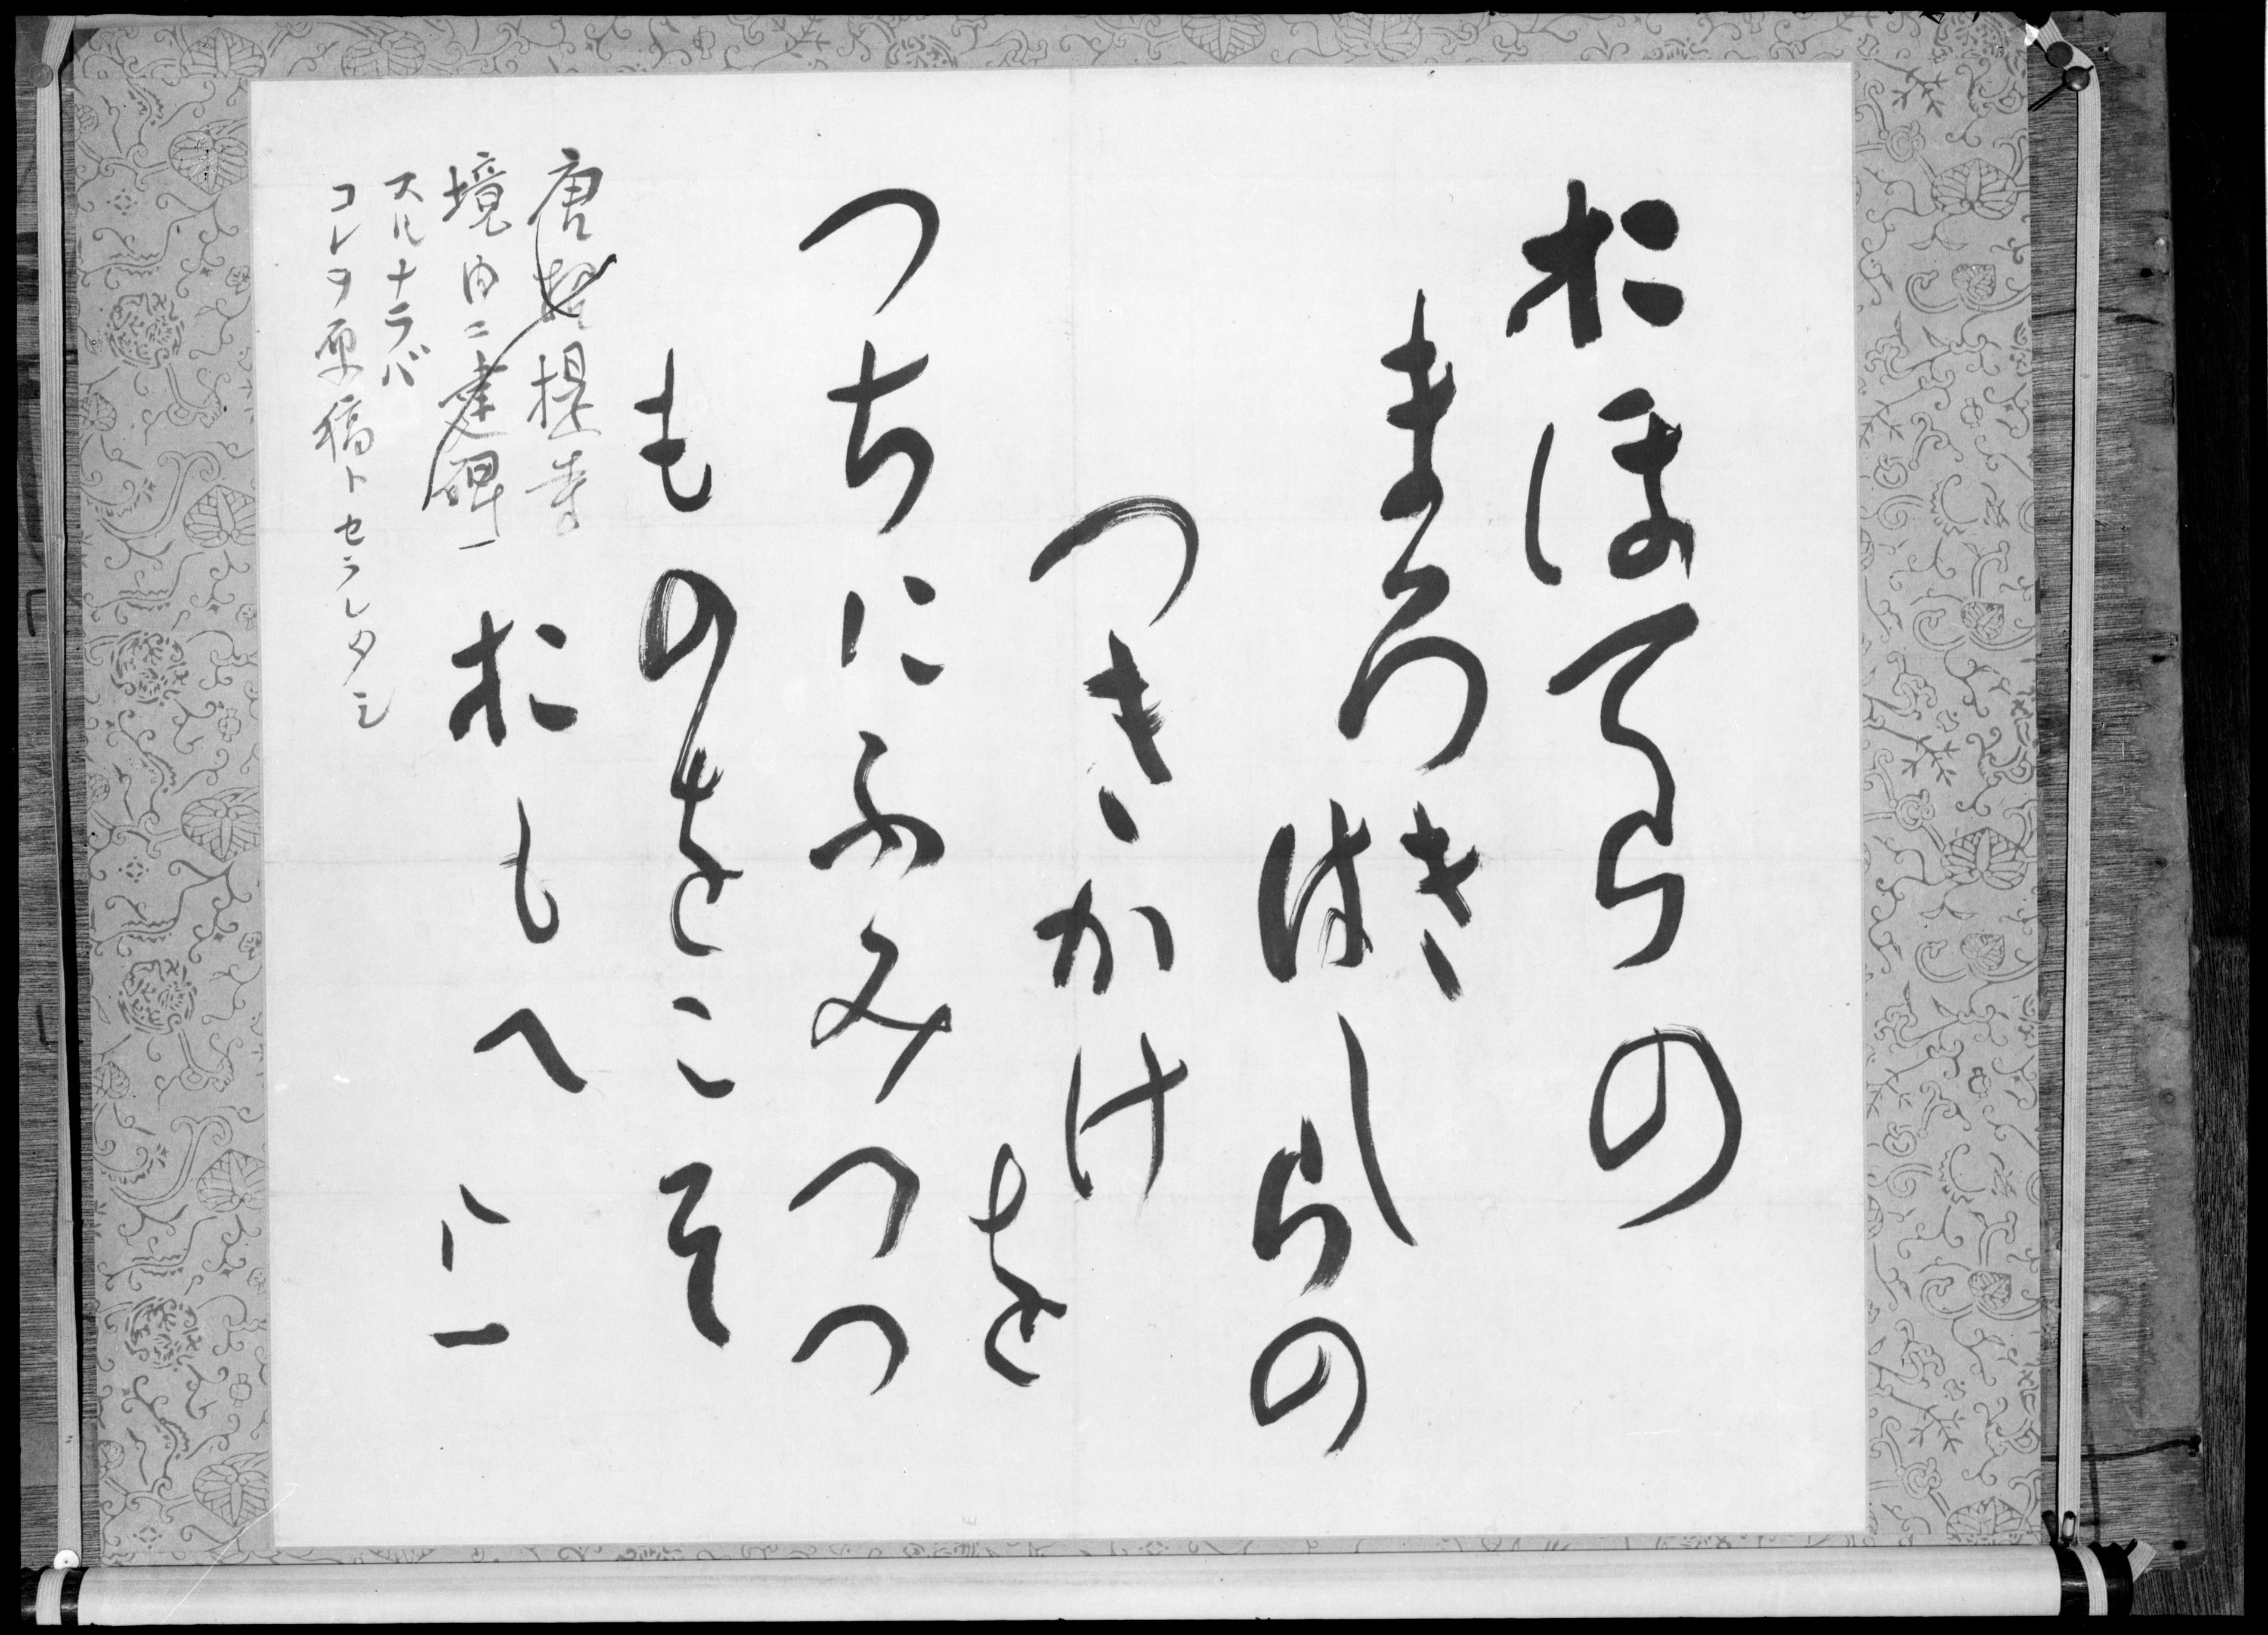 おほてらの
まろき
はしらの
つきかけ
を
つちにふみつつ
ものをこそ
おもへ
八一
唐招提寺
境内ニ建碑
スルナラバ
コレヲ原稿トセラレタシ